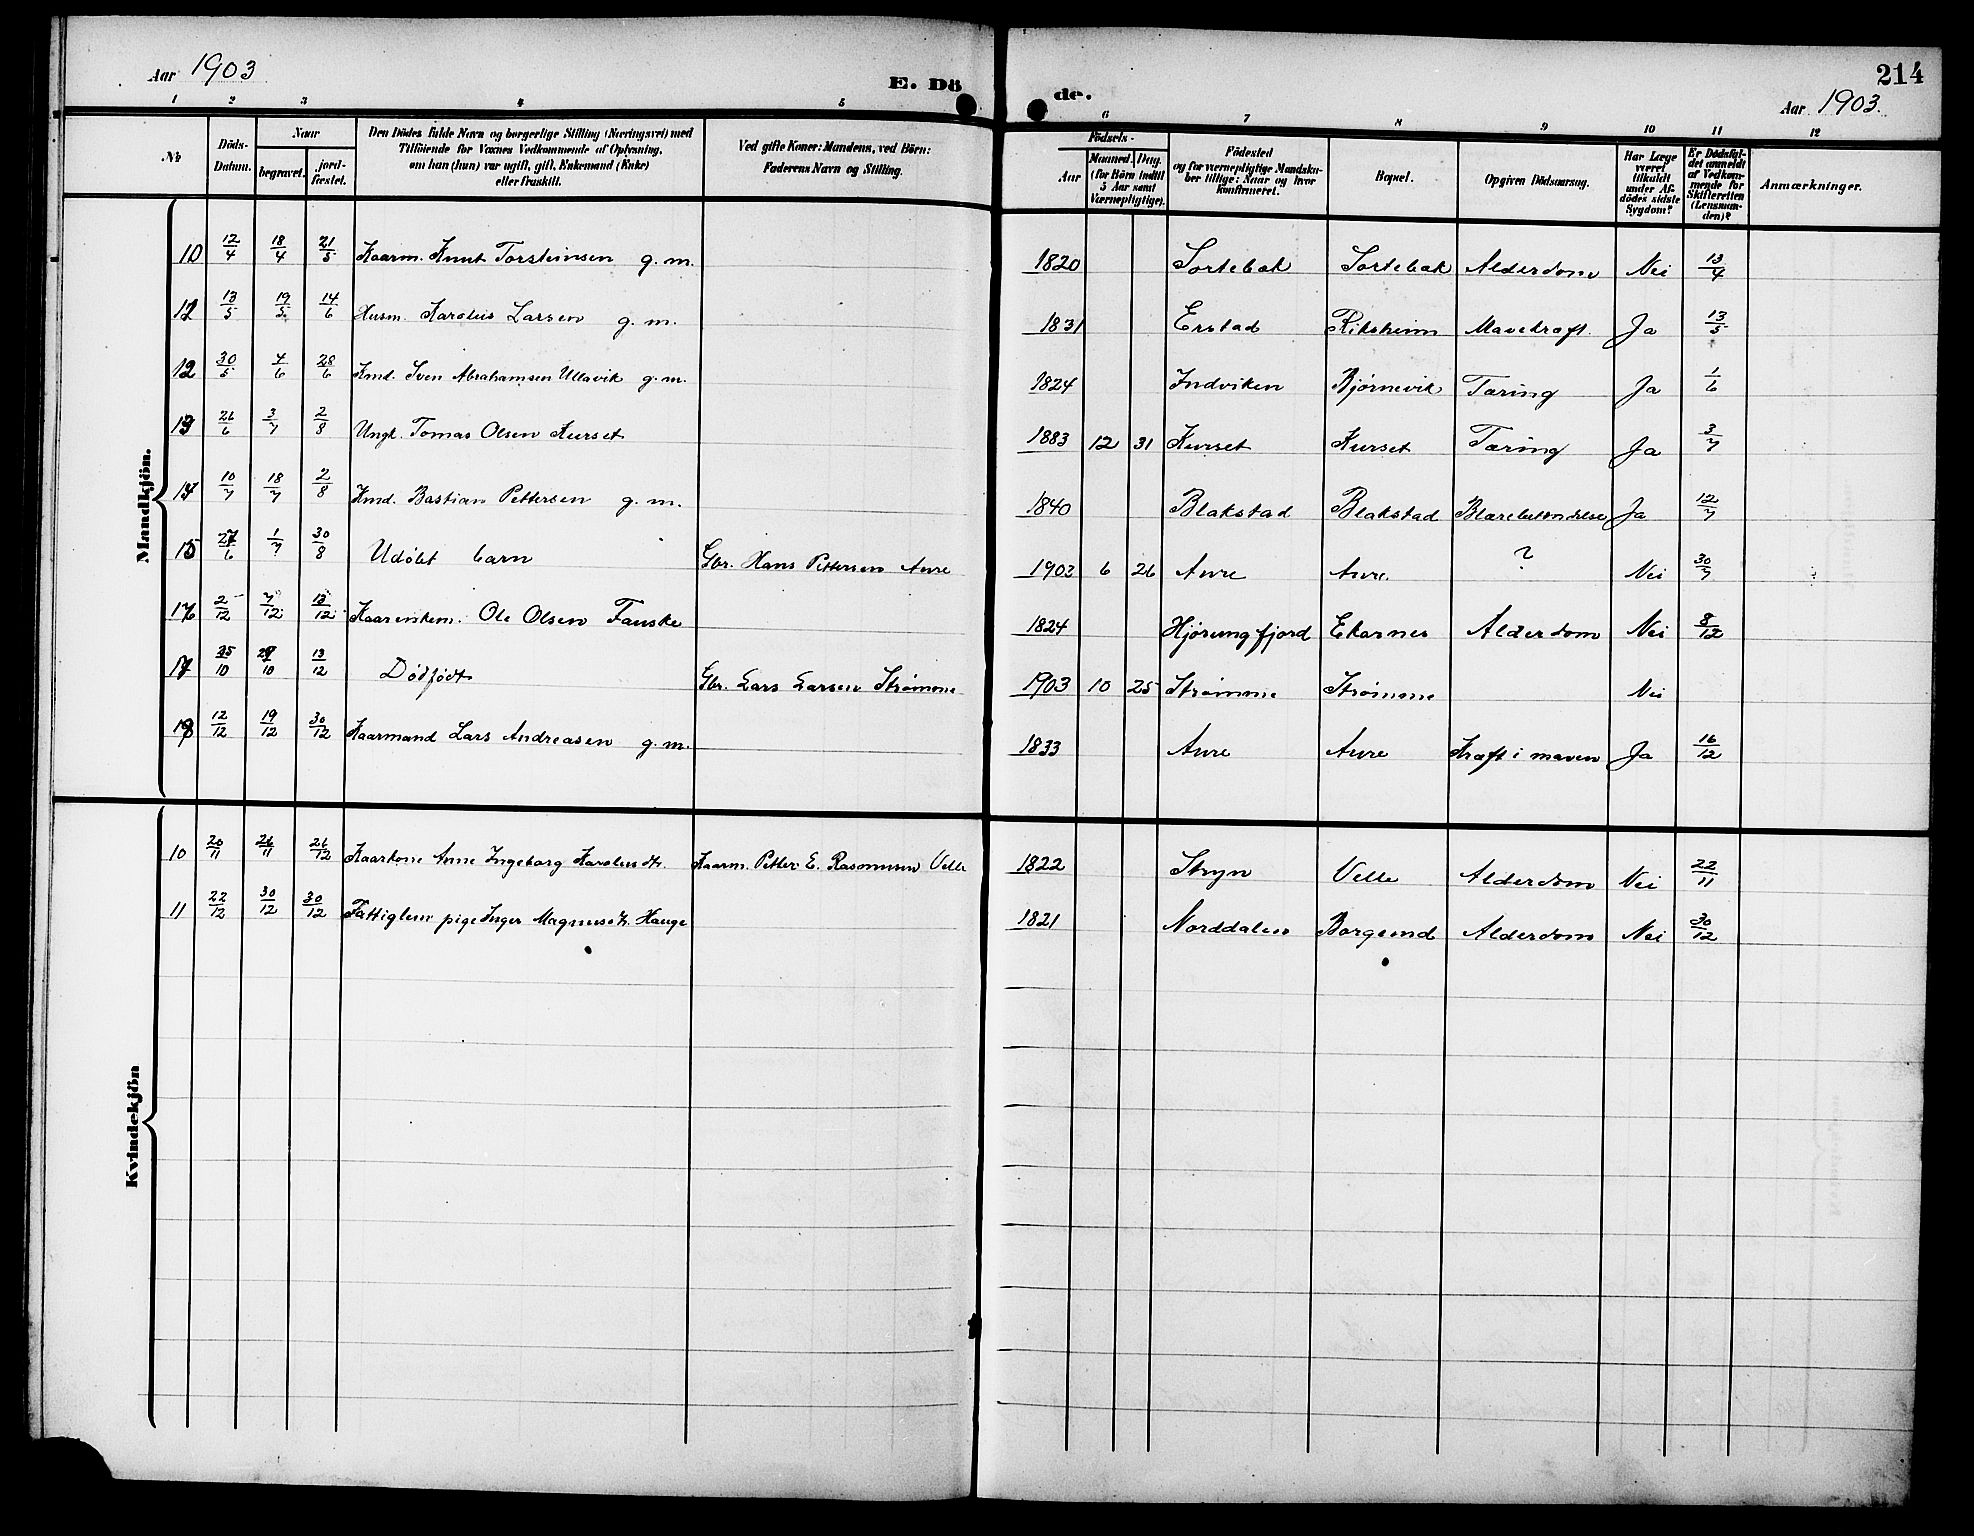 Aar 1903
E. Dö
de.
214
Aar 1903.
1 2 3 4 5 6 7 8 9 10 11 12
No
Döds-Datum.
Naar
begravet.
jord-fæstet.
Den Dödes fulde Navn og borgerlige Stilling (Næringsvei) med
Tilföiende for Voxnes Vedkommende af Oplysning,
om han (hun) var ugift, gift, Enkemand (Enke)
eller fraskilt.
Ved gifte Koner: Mandens, ved Börn:
Faderens Navn og Stilling.
Födsels-
Aar
Maaned. Dag.
(for Börn indtil 5 Aar samt Værnepligtige).
Födested
og for værnepligtige Mandska-
ber tillige: Naar og hvor
konfirmeret.
Bopæl.
Opgiven Dödsaarsag.
Har Læge
været
tilkaldt
under Af-
dödes sidste
Sygdom?
Er Dödsfal-
det anmeldt
af Vedkom-
mende for
Skifteretten
(Lensman-
den)?
Anmærkninger.
Mandkjön.
10 12/4 18/4 21/5 Kaarm. Knut Torsteinsen g. m. 1820 Sortebak Sortebak Alderdom Nei 13/4
13/5 19/5 14/6 Husm. Karolus Larsen g. m. 1831 Erstad Riksheim Mavekræft Ja 13/5
12 30/5 4/6 28/6 Kmd. Sven Abrahamsen Ullavik g. m. 1824 Indviken Bjørnevik Tæring Ja 1/6
13 26/6 3/7 2/8 Ungk. Tomas Olsen Kurset 1883 12 31 Kurset Kurset Tæring Ja 3/7
10/7 18/7 2/8 Kmd. Bastian Pettersen g. m. 1840 Blakstad Blakstad Blærebetændelse Ja 12/7
15 /6 1/7 30/8 Udøbt barn Gbr. Hans Pettersen Aure 1903 6 26 Aure Aure. ? Nei 30/7
2/12 7/12 13/12 Kaarenkem. Ole Olsen Fauske 1824 Hjørungfjord Ekornes Alderdom Nei 8/12
25/10 /10 13/12 Dødfødt Gbr. Lars Larsen Strømme 1903 10 25 Strømme Strømme Nei
12/12 19/12 30/12 Kaarmand Lars Andreasen g. m. 1833 Aure Aure Kræft i maven Ja 16/12
Kvindekjön
10 20/11 26/11 26/12 Kaarkone Anne Ingeborg Karolusdtr. Kaarm. Petter E. Rasmussen Velle 1822 Stryn Velle Alderdom Nei 22/11
11 22/12 30/12 30/12 Fattiglem pige Inger Magnusdtr. Hauge 1821 Norddalen Borgund Alderdom Nei 30/12